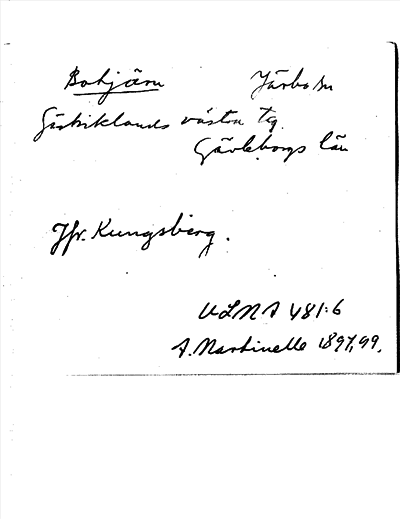 Bohjärn Järbo sn
Gästriklands västra tg.
Gävleborgs län
Jfr. Kungsberg.
ULMA 481:6
A. Martinelle 1897, 99.